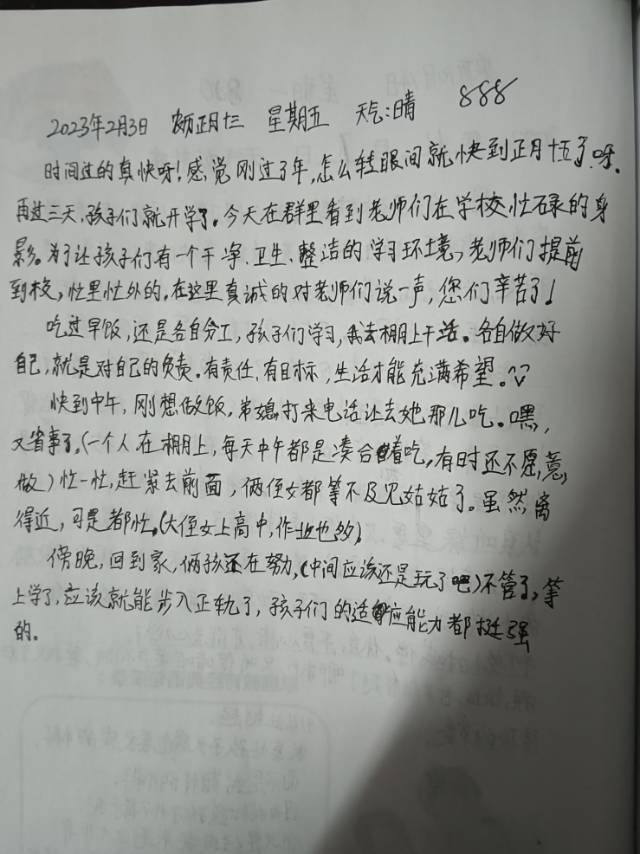 888
2023年2月3日 正月十三 星期五 天气:晴
时间过的真快呀!感觉刚过了年,怎么转眼间就快到正月十五了呀.
再过三天,孩子们就开学了。今天在群里看到老师们在学校忙碌的身
影。为了让孩子们有一个干净、卫生、整洁的学习环境,老师们提前
到校,忙里忙外的,在这里真诚的对老师们说一声,您们辛苦了!
吃过早饭,还是各自分工,孩子们学习,我去棚上干活。各自做好
自己,就是对自己的负责。有责任,有目标,生活才能充满希望。
快到中午,刚想做饭,弟媳打来电话让去她那儿吃。嘿,
又省事了,(一个人在棚上,每天中午都是凑合着吃,有时还不愿意
做)忙一忙,赶紧去前面,俩侄女都等不及见姑姑了。虽然离
得近,可是都忙。(大侄女上高中,作业也多)
傍晚,回到家,俩孩还在努力,(中间应该还是玩了吧)不管了,等
上学了,应该就能步入正轨了,孩子们的适应能力都挺强
的.